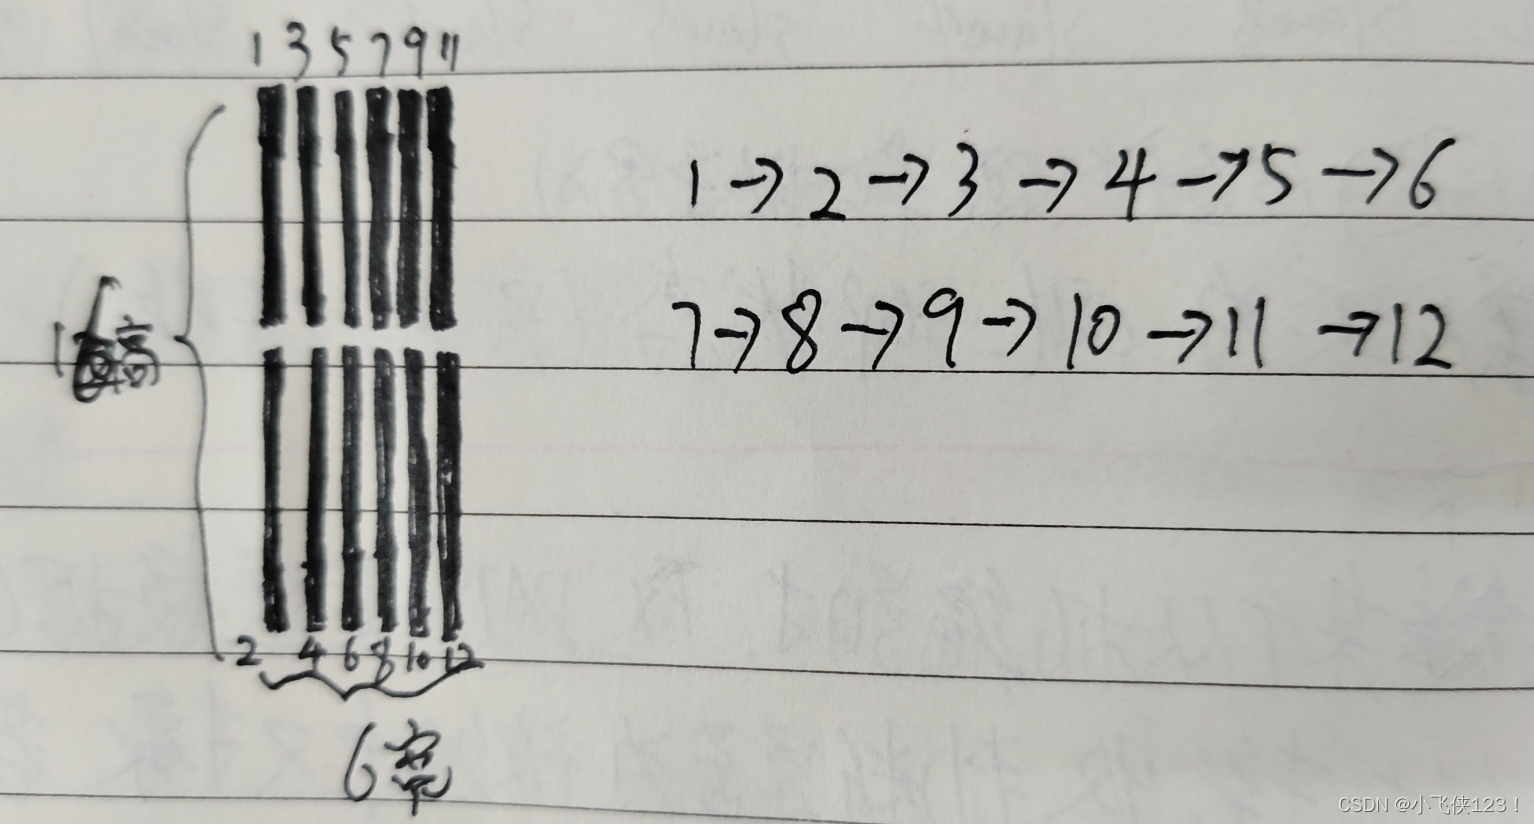 1 3 5 7 9 11
1 → 2 → 3 → 4 → 5 → 6
7 → 8 → 9 → 10 → 11 → 12
1 高
2 4 6 8 10 12
6 宽
CSDN @小飞侠123！